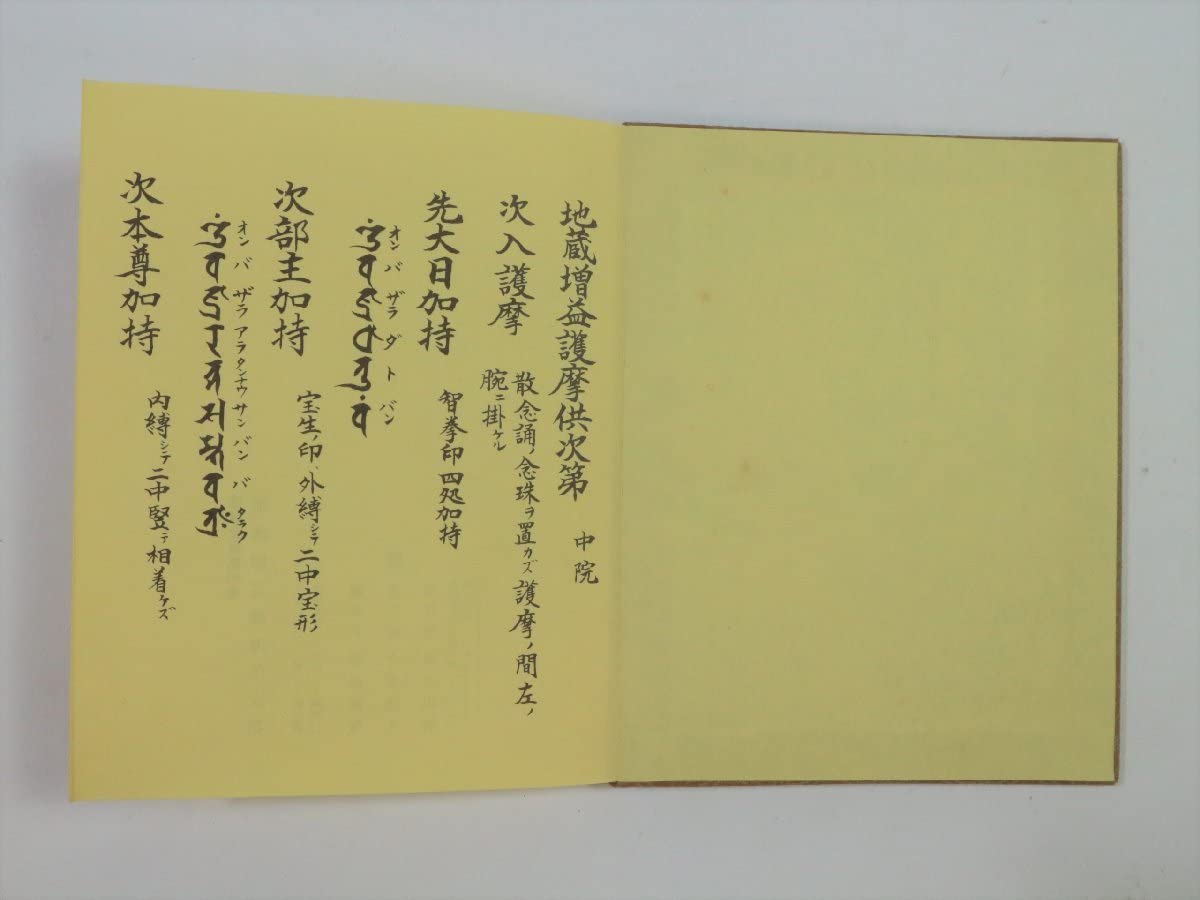 地蔵増益護摩供次第 中院
次入護摩 散念誦ノ念珠ヲ置カズ護摩ノ間左ノ
腕ニ掛ケル
先大日加持 智拳印四処加持
オン バ ザラ ダ ト バン
次部主加持 宝生ノ印、外縛シテ二中宝形
オン バ ザラ アラタンナウ サン バン バ タラク
次本尊加持 内縛シテ二中竪テ相着ケズ